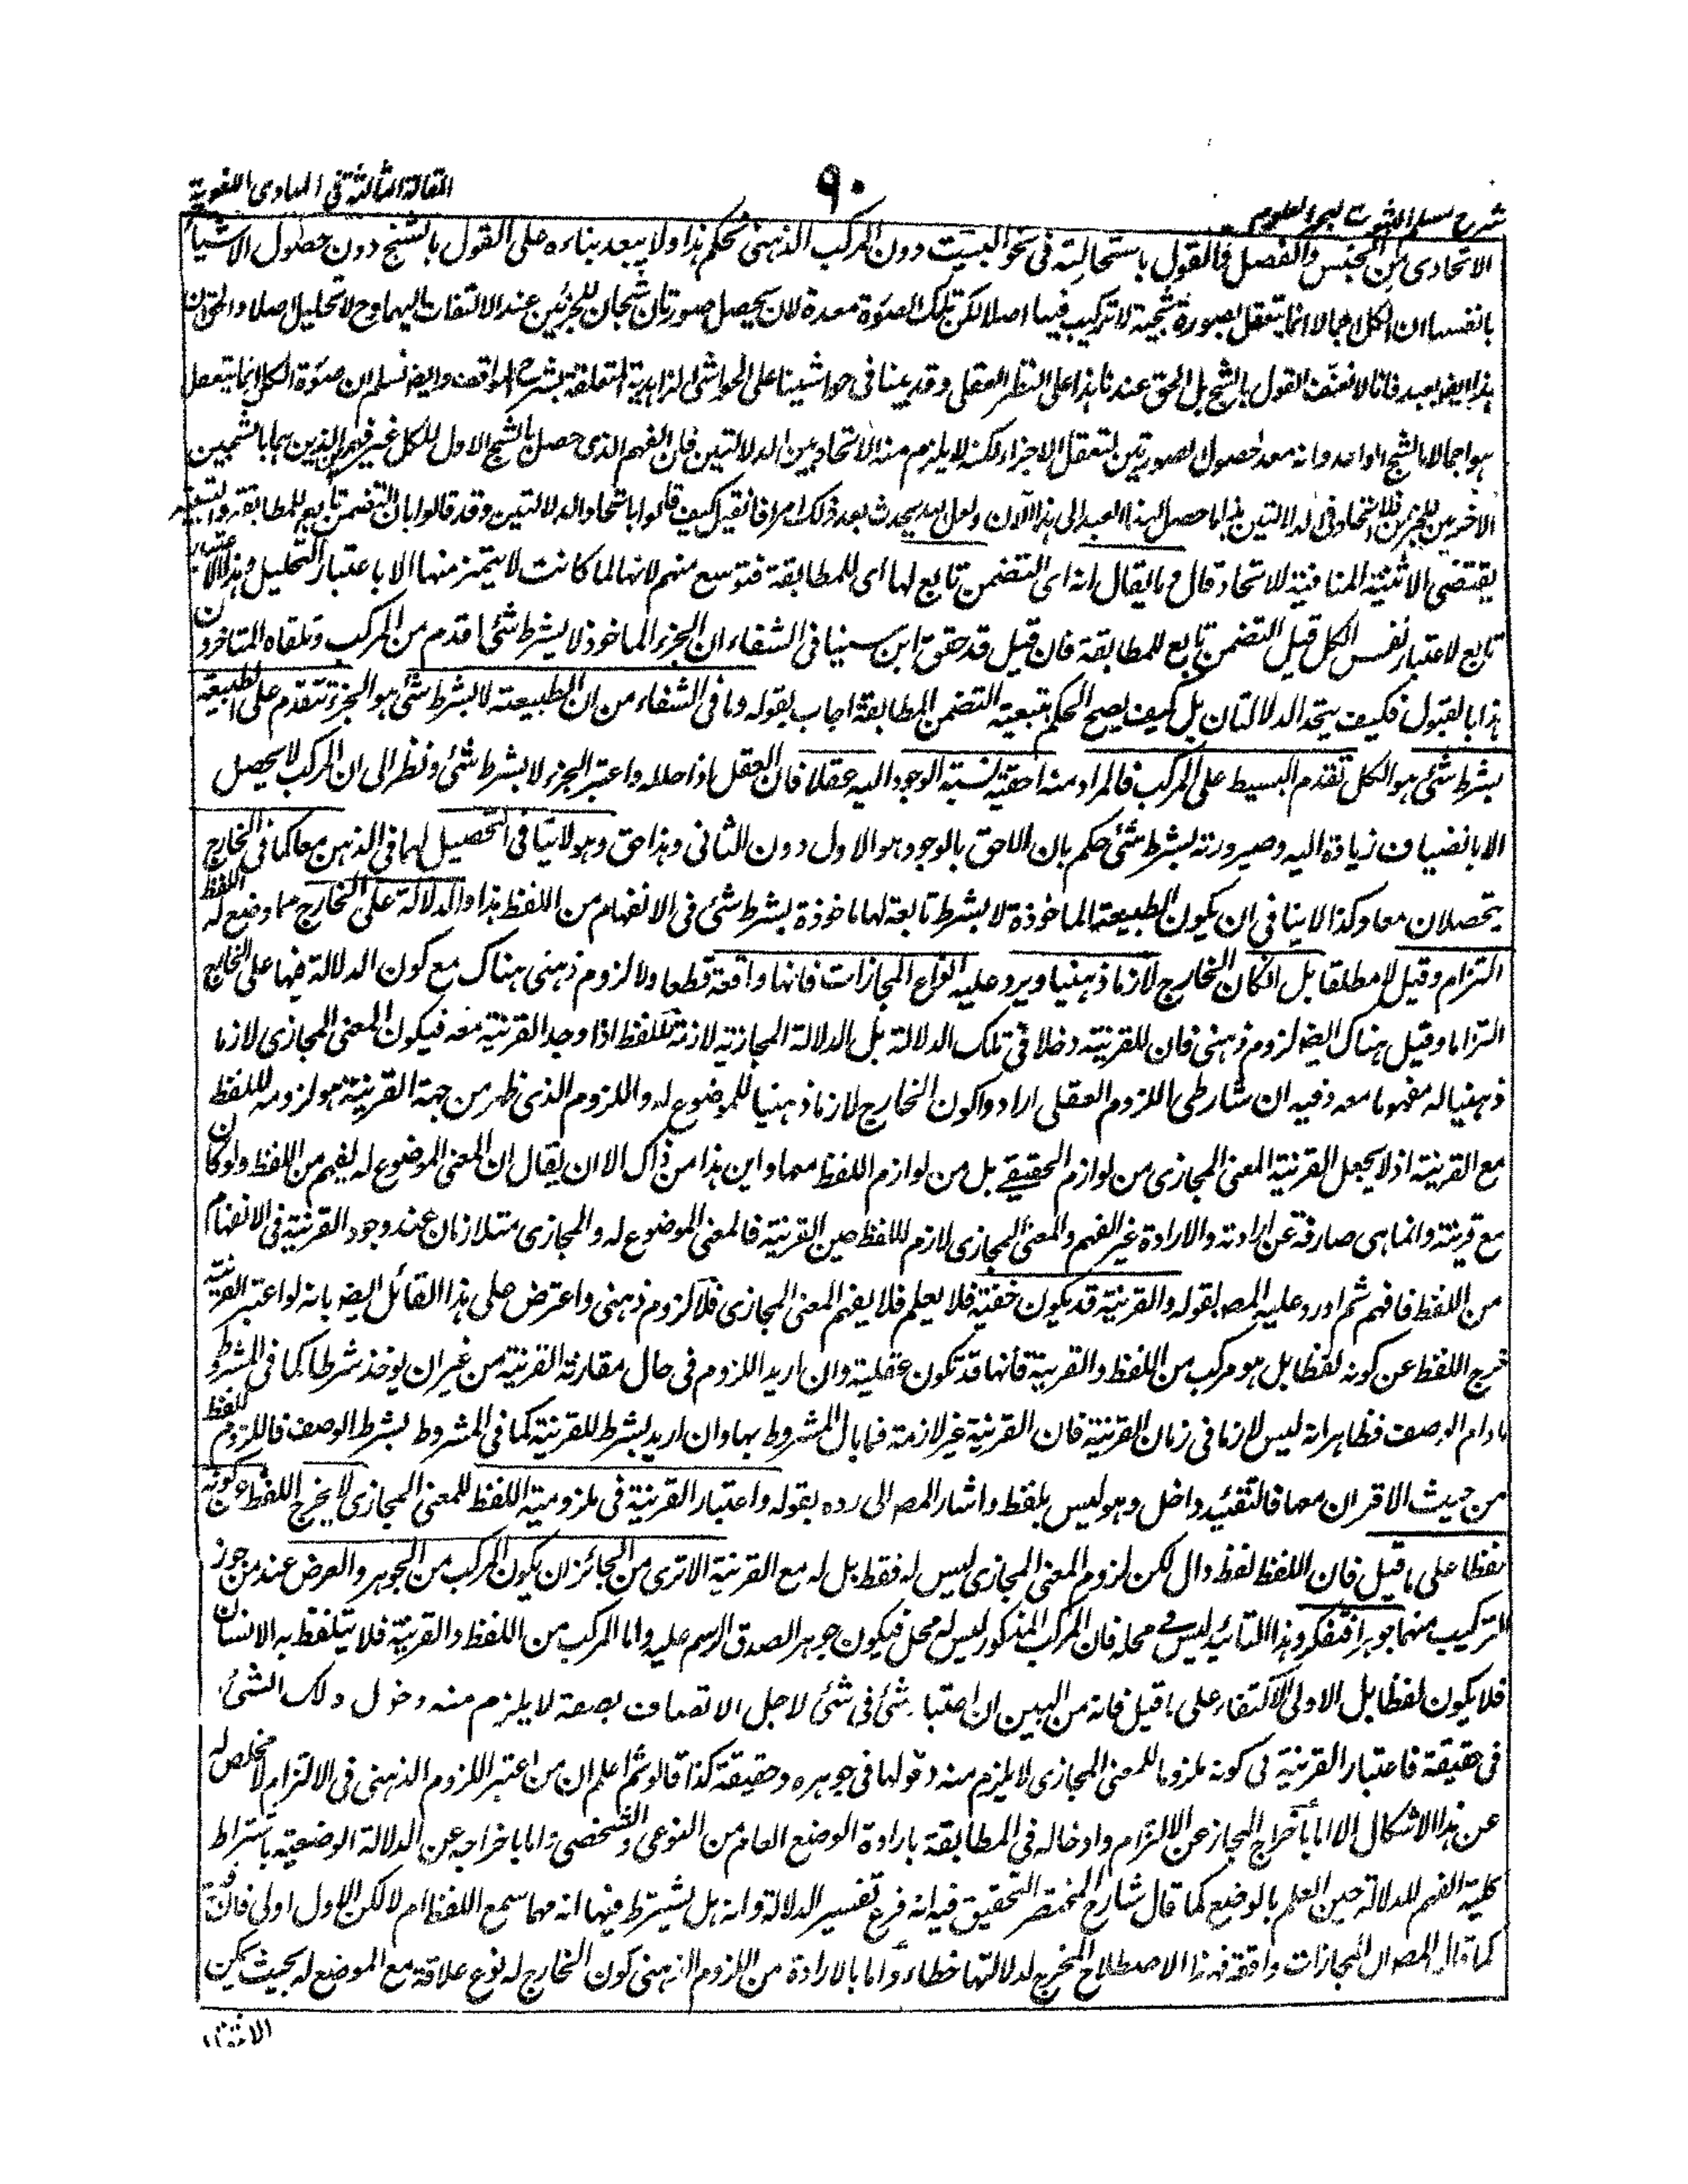 المقالة الثالثة في المبادى اللغوية
٩٠
شرح مسلم الثبوت لبحر العلوم
الاتحادى من الجنس والفصل فالقول باستحالته فى نحو البيت دون المركب الذهنى تحكم هذا ولا يبعد بناءه على القول بالشبح دون حصول الاشياء
بانفسها ان الكل اجمالا انما يتعقل بصورة شبحية لا تركيب فيها اصلا لكن تلك الصورة معدة لان يحصل صورتان شبحان للجزئين عند الالتفات اليهما وح لا تحليل اصلا والحق ان
هذا ايضا بعيد فانا لا نعنف القول بالشبح بل الحق عندنا هذا على النظر العقلى وقد بينا فى حواشينا على الحواشى الزاهدية المتعلقة بشرح المواقف وايضا نسلم ان صورة الكل انما يتعقل
هو اجمالا بالشبح الواحد وانه معد لحصول الصورتين لتعقل الاجزاء لكنه لا يلزم منه الاتحاد بين الدلالتين فان الفهم الذى حصل بالشبح الاول للكل غير فهم الذين هما بالشبحين
الاخرين للجزئين فلا اتحاد فى الدلالتين هذا ما حصل لهذا العبد الى هذا الآن ولعل الله يحدث بعد ذلك امرا فان قيل كيف قالوا باتحاد الدلالتين وقد قالوا بان التضمن تابع للمطابقة والتبعية
يقتضى الاثنينية المنافية للاتحاد قال وما يقال انه اى التضمن تابع لها اى للمطابقة فتوسع منهم لانها لما كانت لا يتميز منها الا باعتبار التحليل وهذا الاعتبار
تابع لاعتبار نفس الكل قيل التضمن تابع للمطابقة فان قيل قد حقق ابن سينا فى الشفاء ان الجزء الماخوذ لا بشرط شئ اقدم من المركب وتلقاه المتاخرون
هذا بالقبول فكيف يتحد الدلالتان بل كيف يصح الحكم بتبعية التضمن المطابقة اجاب بقوله وما فى الشفاء من ان الطبيعة لا بشرط شئ هو الجزء تتقدم على الطبيعة
بشرط شئ هو الكل تقدم البسيط على المركب فالمراد منه احقية نسبة الوجود اليه عقلا فان العقل اذا حلله واعتبر الجزء لا بشرط شئ ونظر الى ان المركب لا يحصل
الا بانضياف زيادة اليه وصيرورته بشرط شئ حكم بان اللاحق بالوجود هو الاول دون الثانى وهذا حق وهو لا ينافى التحصيل لهما فى الذهن معا كما فى الخارج
يتحصلان معا وكذا لا ينافى ان يكون الطبيعة الماخوذة لا بشرط تابعة لها ماخوذة بشرط شئ فى الانفهام من اللفظ هذا والدلالة على الخارج مما وضع له اللفظ
التزام وقيل لا مطلقا بل ان كان الخارج لازما ذهنيا ويرد عليه انواع المجازات فانها واقعة قطعا ولا لزوم ذهنى هناك مع كون الدلالة فيها على الخارج
التزاما وقيل هناك ايضا لزوم ذهنى فان للقرينة دخلا فى تلك الدلالة بل الدلالة المجازية لازمة للفظ اذا وجد القرينة معه فيكون المعنى المجازى لازما
ذهنيا له مفهوما معه وفيه ان شارطى اللزوم العقلى ارادوا كون الخارج لازما ذهنيا للموضوع له واللزوم الذى ظهر من جهة القرينة هو لزومه للفظ
مع القرينة اذ لا يجعل القرينة المعنى المجازى من لوازم الحقيقى بل من لوازم اللفظ معها واين هذا من ذاك الا ان يقال ان المعنى الموضوع له يفهم من اللفظ ولو كان
مع قرينة وانما هى صارفة عن ارادته والارادة غير الفهم والمعنى المجازى لازم للفظ حين القرينة فالمعنى الموضوع له والمجازى متلازمان عند وجود القرينة فى الانفهام
من اللفظ فافهم ثم اورد عليه المص بقوله والقرينة قد يكون خفية فلا يعلم فلا يفهم المعنى المجازى فلا لزوم ذهنى واعترض على هذا القائل ايضا بانه لو اعتبر القرينة
خرج اللفظ عن كونه لفظا بل هو مركب من اللفظ والقرينة فانها قد تكون عقلية وان اريد اللزوم فى حال مقارنة القرينة من غير ان يوخذ شرطا كما فى المشروط
مادام الوصف فظاهر انه ليس لازما فى زمان القرينة فان القرينة غير لازمة فما بال المشروط بها وان اريد بشرط القرينة كما فى المشروط بشرط الوصف فاللزوم للفظ
من حيث الاقتران معها فالتقئيد داخل وهو ليس بلفظ واشار المص الى رده بقوله واعتبار القرينة فى ملزومية اللفظ للمعنى المجازى لا يخرج اللفظ عن كونه
لفظا على ما قيل فان اللفظ لفظ دال لكن لزوم المعنى المجازى ليس له فقط بل له مع القرينة الا ترى من الجائز ان يكون المركب من الجوهر والعرض عند من جوز
التركيب منهما جوهرا فتفكر وهذا التائيد ليس فى محله فان المركب المذكور ليس له محل فيكون جوهر الصدق الرسم عليه واما المركب من اللفظ والقرينة فلا يتلفظ به الانسان
فلا يكون لفظا بل الاولى الاكتفاء على ما قيل فانه من البين ان اعتبار شئ فى شئ لاجل الاتصاف بصفة لا يلزم منه دخول ذلك الشئ
فى حقيقة فاعتبار القرينة فى كونه ملزوما للمعنى المجازى لا يلزم منه دخولها فى جوهره وحقيقة كذا قالوا ثم اعلم ان من اعتبر اللزوم الذهنى فى الالتزام لا مخلص له
عن هذا الاشكال الا اما باخراج المجاز عن الالتزام وادخاله فى المطابقة بارادة الوضع العام من النوعى والشخصى واما باخراجه عن الدلالة الوضعية باشتراط
كلية الفهم للدلالة حين العلم بالوضع كما قال شارح المختصر التحقيق فيه انه فرع تفسير الدلالة وانه هل يشترط فيها انه مهما سمع اللفظ ام لا لكن الاول اولى فانه
كما قال المص ان المجازات واقعة فهذا الاصطلاح المخرج لدلالتها خطاء واما بالارادة من اللزوم الذهنى كون الخارج له نوع علاقة مع الموضع له بحيث يمكن